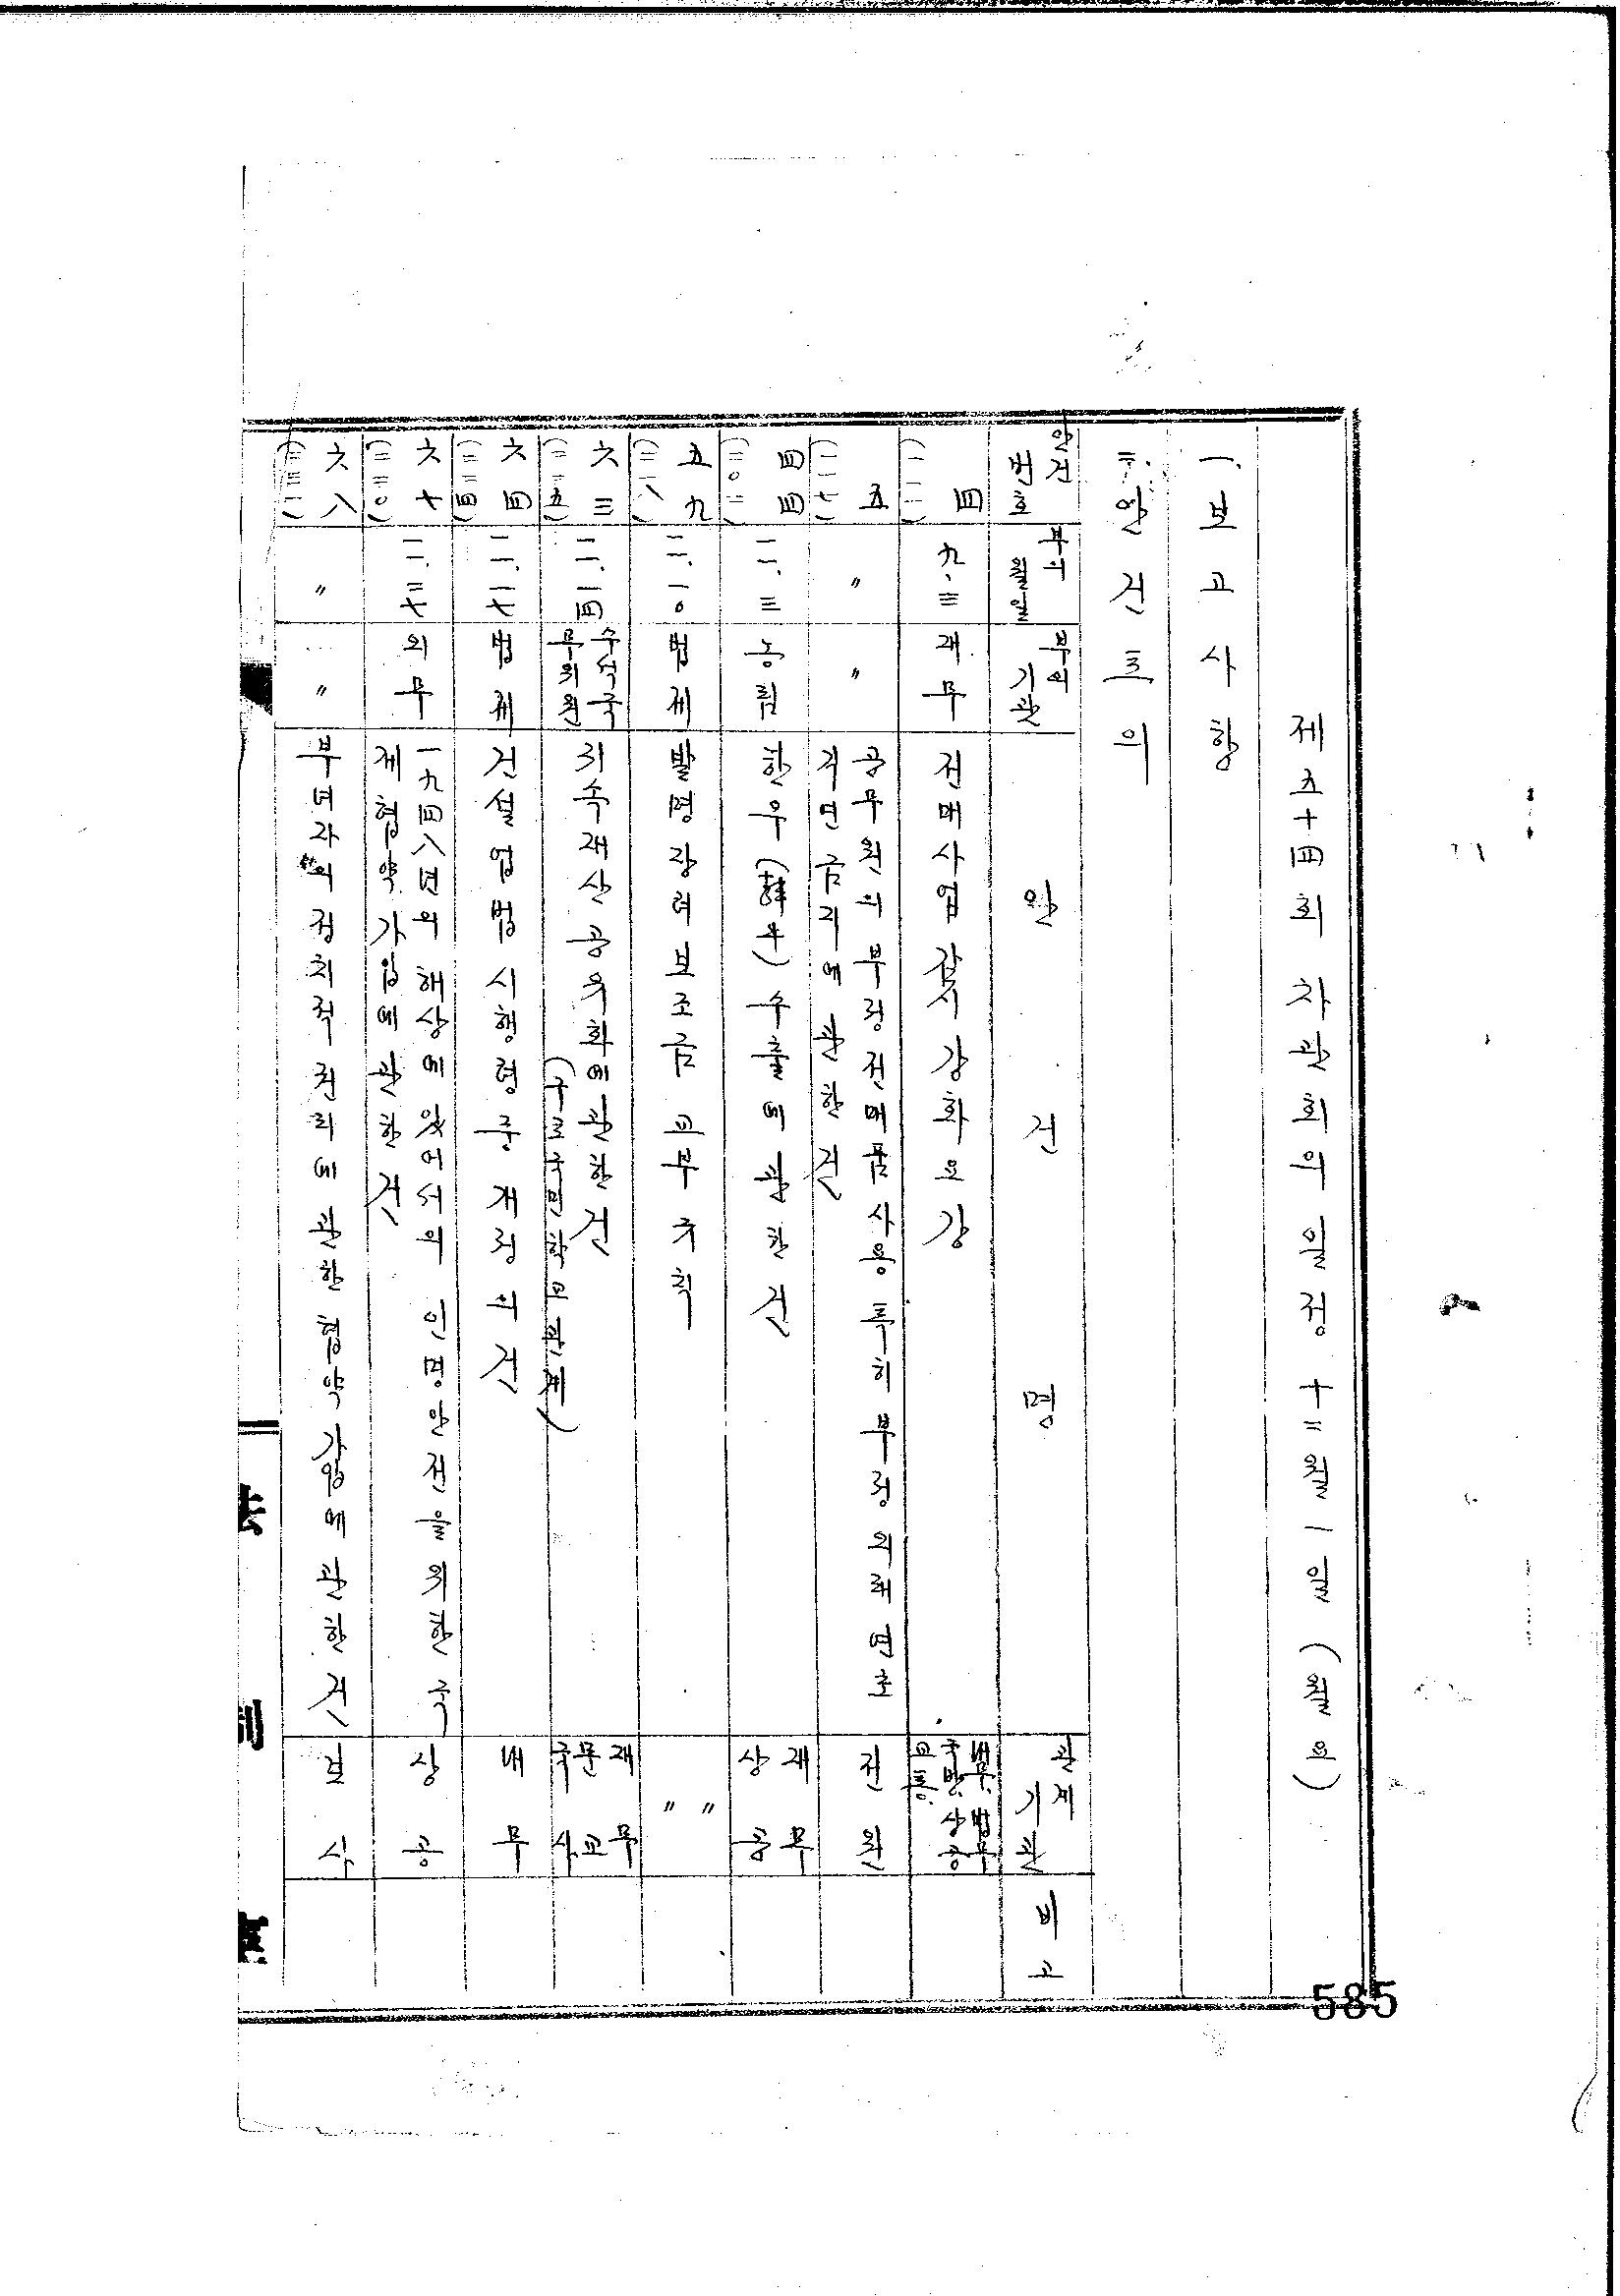 제五十四회 차관회의 일정 十二월 一일 (월요)
一. 보고사항
二. 안건토의
안건번호 부의월일 부의기관 안건명 관계기관 비고
四 (一一) 九.三 재무 전매사업 감시 강화 요강 내무. 법무 국방. 상공 교통.
五 (一七) 〃 〃 공무원의 부정전매품 사용 특히 부정외래연초
직연금지에 관한 건 전원
四四 (二〇二) 一一.三 농림 한우(韓牛) 수출에 관한 건 재무 상공
五九 一一.一〇 법제 발명장려보조금 교부규칙 〃 〃
六三 (二三五) 一一.一四 수석국무위원 귀속재산 공유화에 관한 건
(구로국민학교관계) 재무 문교 국사
六四 (二二四) 一一.一七 법제 건설업법 시행령 중 개정의 건 내무
六七 (二三〇) 一一.二七 외무 一九四八년의 해상에 있어서의 인명안전을 위한 국
제협약 가입에 관한 건 상공
六八 (二三一) 〃 〃 부녀자의 정치적 권리에 관한 협약 가입에 관한 건 보사
585